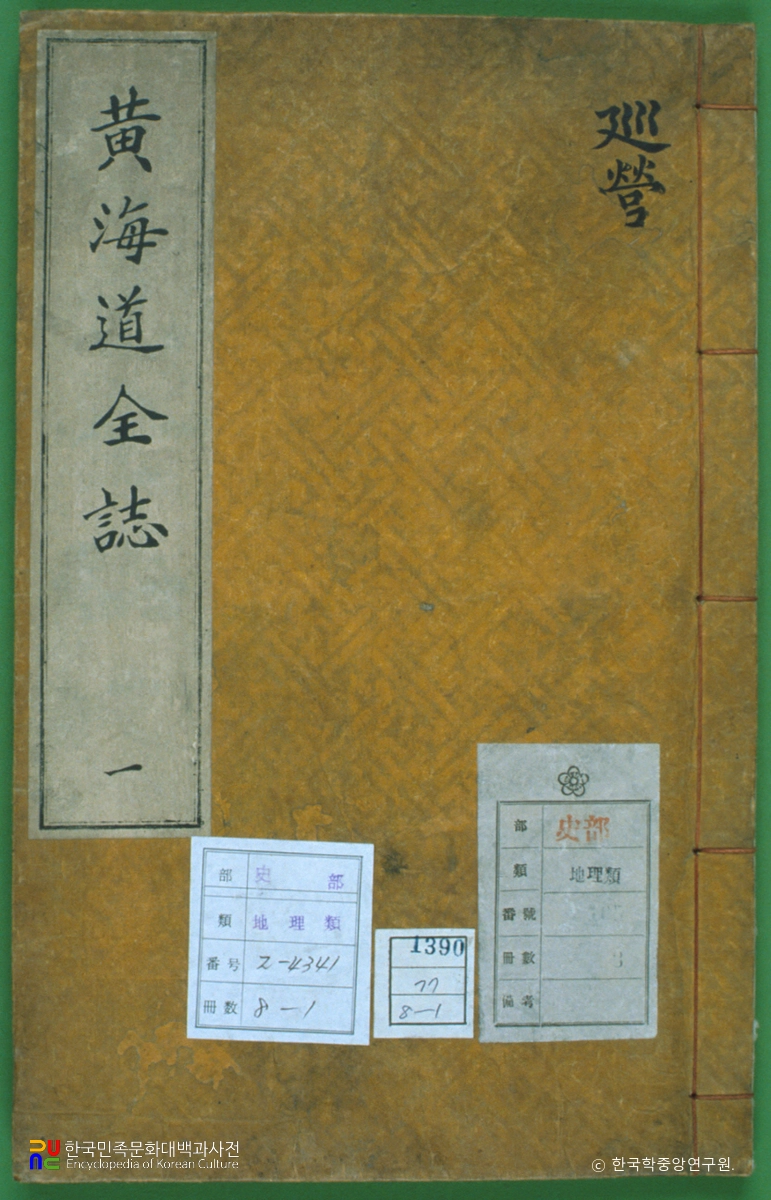 巡營
黃海道全誌
一
部 史部
類 地理類
番號
冊數
備考
部 史部
類 地理類
番号 2-4341
冊数 8-1
1390
77
8-1
한국민족문화대백과사전
Encyclopedia of Korean Culture
© 한국학중앙연구원.